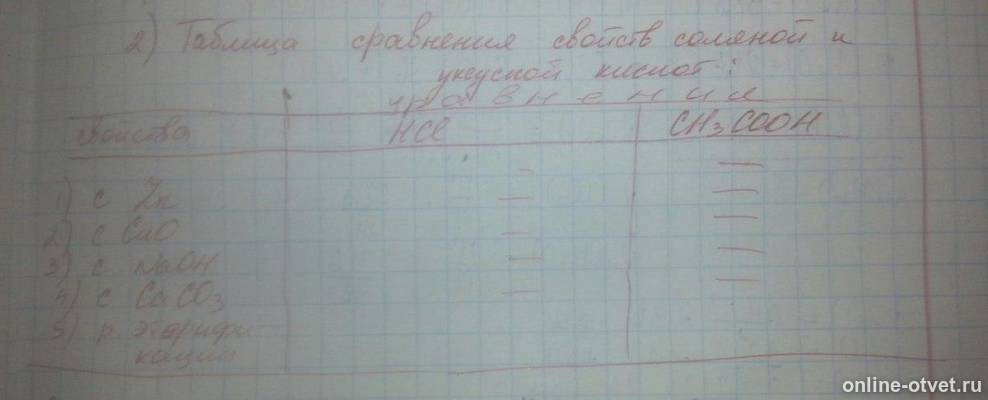 2) Таблица сравнения свойств соляной и
уксусной кислот:
уравнения
свойства HCl CH3COOH
1) с Zn — —
2) с CuO — —
3) с NaOH — —
4) с CaCO3 — —
5) р. этерифи — —
кации
online-otvet.ru